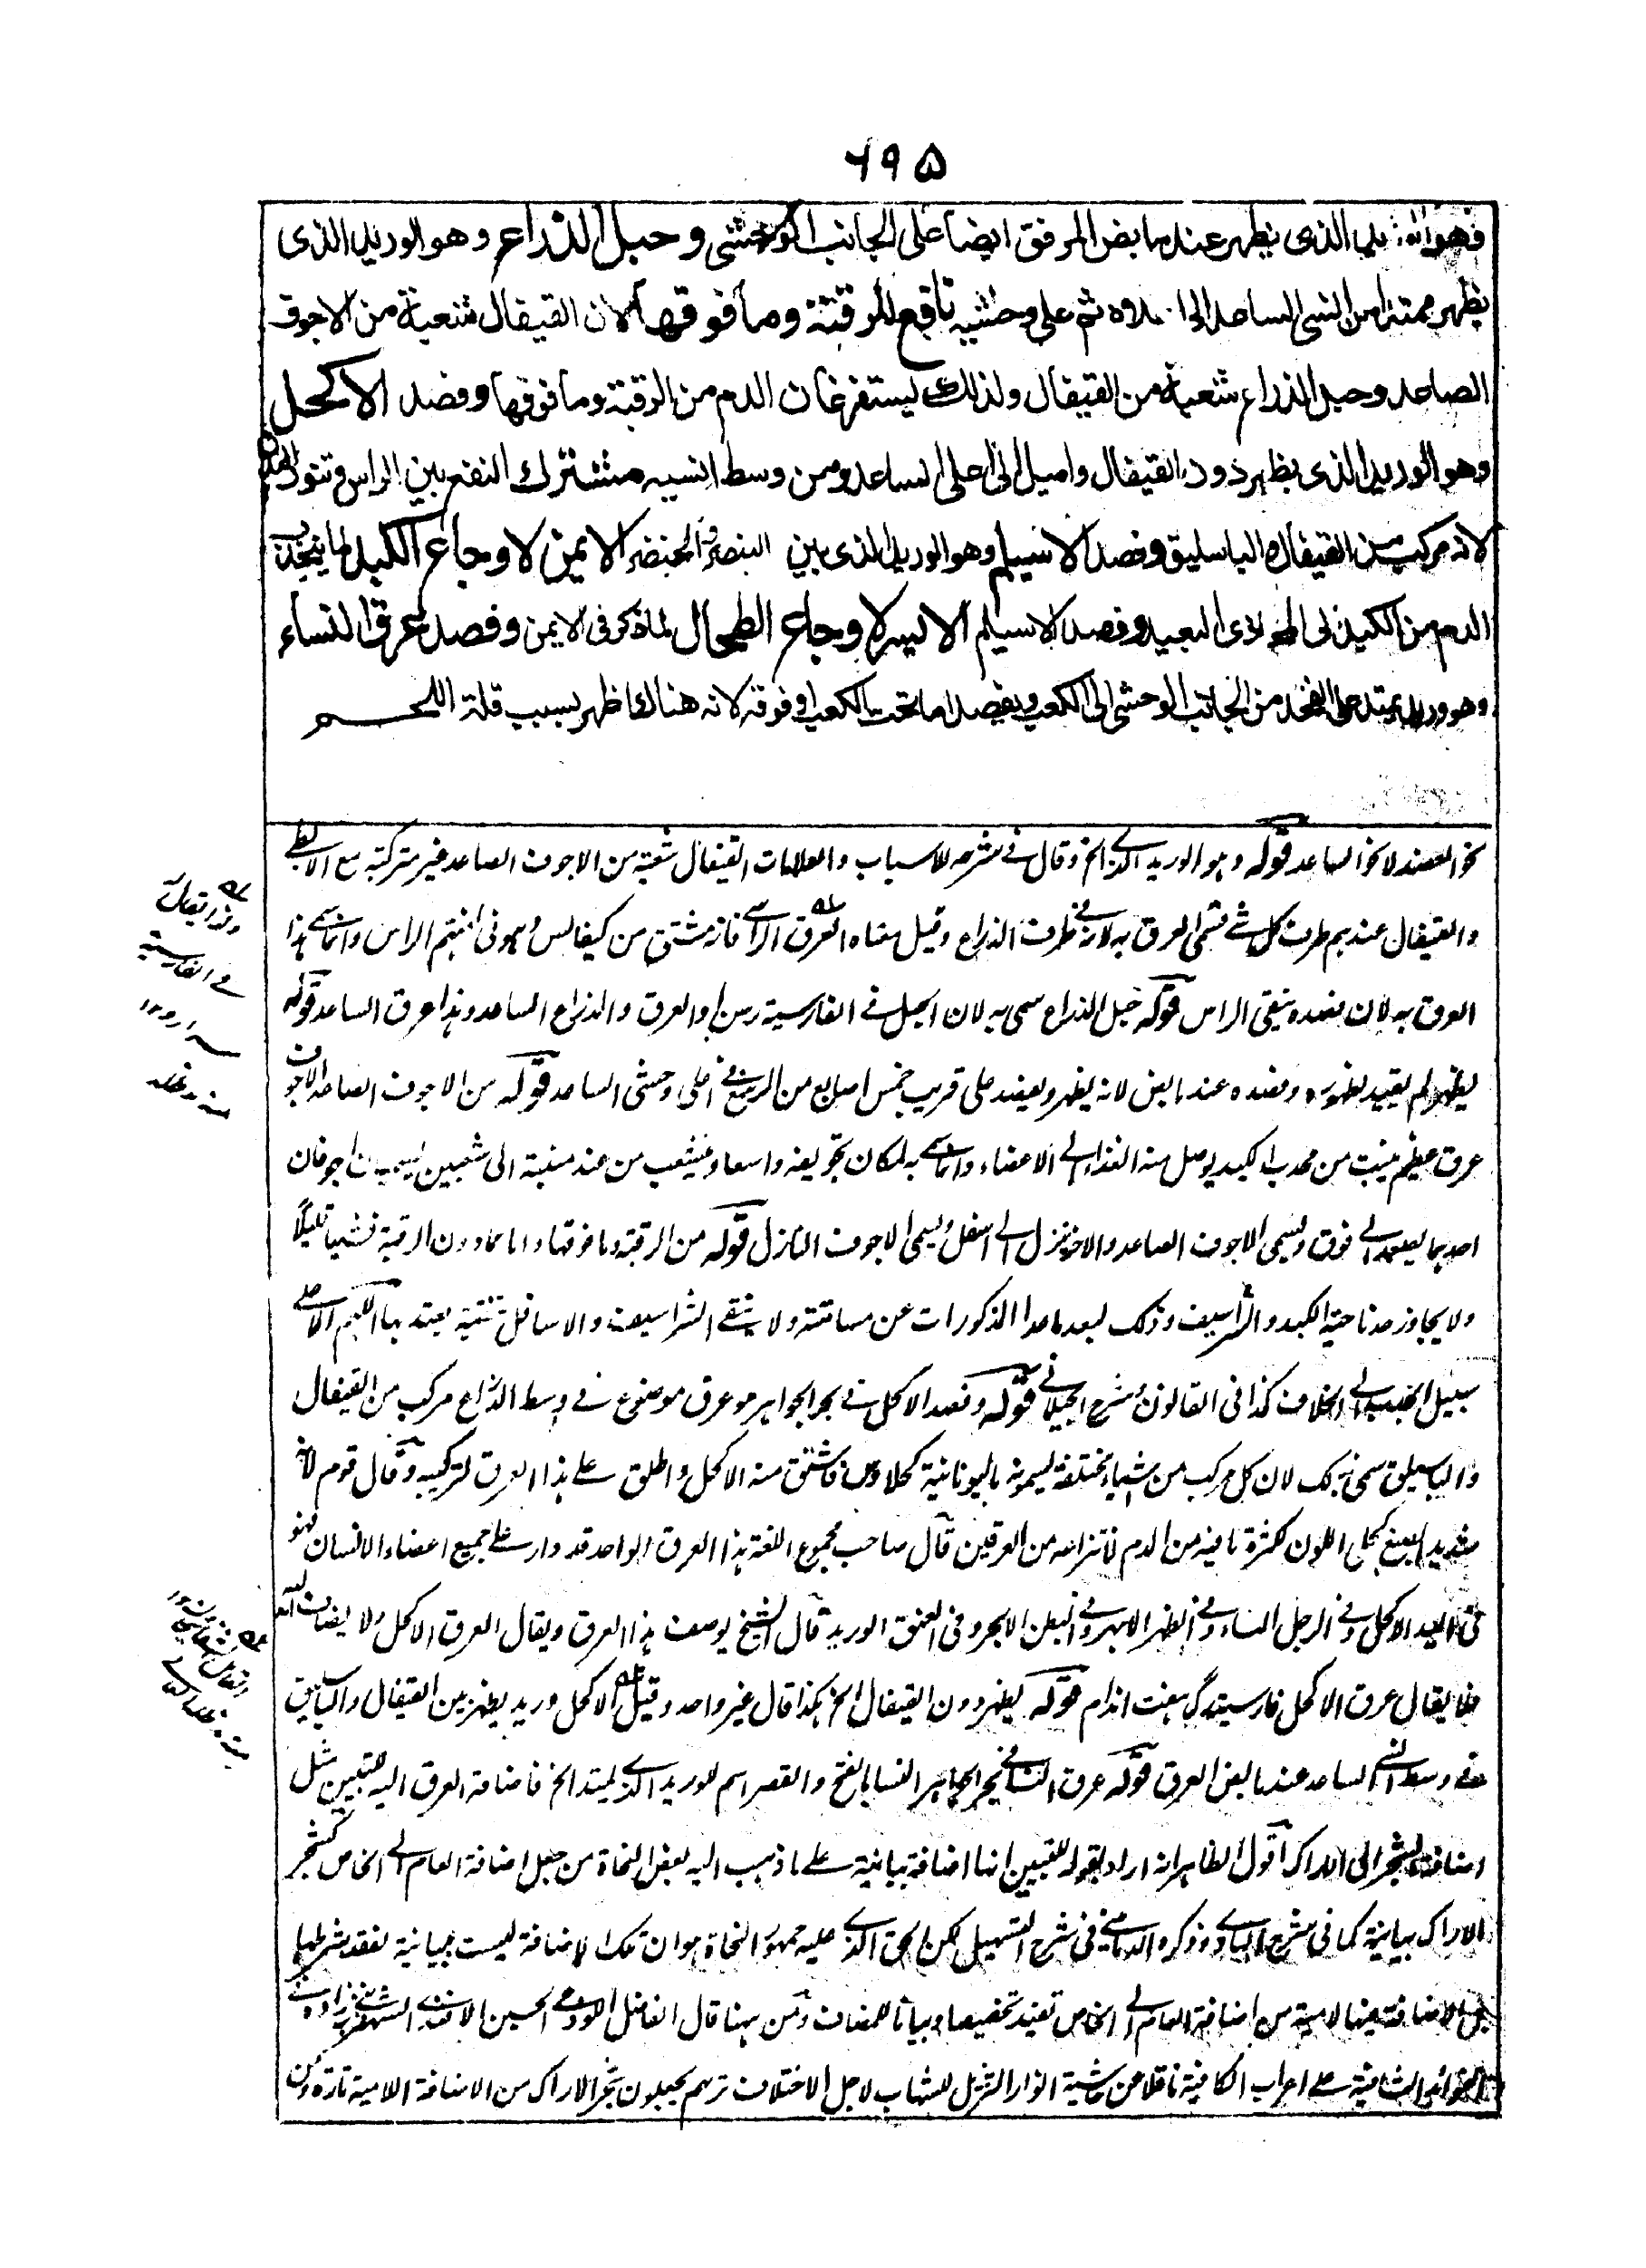 ۶۹۵
الذى يظهر عند مابض المرفق ايضا على الجانب الوحشى وحبل الذراع وهو الوريد الذى
يظهر ممتدا من انسى الساعد الى اعلاه ثم على وحشيه نافع للرقبة وما فوقها لان القيفال شعبة من الاجوف
الصاعد وحبل الذراع شعبة من القيفال ولذلك يستفرغان الدم من الرقبة وما فوقها وفصد الاكحل
وهو الوريد الذى يظهر دون القيفال واميل الى اعلى الساعد ومن وسط انسيه مشترك النفع بين الراس وتنور البدن
لانه مركب من القيفال والباسليق وفصد الاسيلم وهو الوريد الذى بين البنصر والخنصر الايمن لاوجاع الكبد لما ينجذب
الدم من الكبد الى المحاذى البعيد وفصد الاسيلم الايسر لاوجاع الطحال لما ذكر فى الايمن وفصد عرق النساء
وهو وريد يمتد على الفخذ من الجانب الوحشى الى الكعب ويفصد اما تحت الكعب او فوقه لانه هناك اظهر بسبب قلة اللحم
نحو العضد لا نحو الساعد قوله وهو الوريد الذى الخ وقال فى شرحه للاسباب والعلامات القيفال شعبة من الاجوف الصاعد غير مركبة مع الابطى
والقيفال عندهم طرف كل شئ فسمى العرق به لانه فى طرف الذراع وقيل معناه العرق الراسى فانه مشتق من كيفالس وهو فى لغتهم الراس وانما سمى هذا
العرق به لان فصده ينقى الراس قوله حبل الذراع سمى به لان الحبل فى الفارسية رسن والعرق والذراع الساعد وهذا عرق الساعد قوله
يظهر لم يقيد بظهوره وفصده عند مابض لانه يظهر ويفصد على قريب خمس اصابع من الرسغ فى اعلى وحشى الساعد قوله من الاجوف الصاعد الاجوف
عرق عظيم ينبت من محدب الكبد يوصل منه الغذاء الى الاعضاء وانما سمى به لمكان تجويفه واسعا ويتشعب من عند منبته الى شعبين يسميان اجوفان
احدهما يصعد الى فوق ويسمى الاجوف الصاعد والاخر ينزل الى اسفل ويسمى الاجوف النازل قوله من الرقبة وما فوقها واما مادون الرقبة فشيئا قليلا
ولا يجاوز حد ناحية الكبد والشراسيف وذلك لبعد ما عدا المذكورات عن مسامتته ولا ينقى الشراسيف والاسافل تنقية يعتد بها اللهم الا على
سبيل الجذب الى الخلاف كذا فى القانون وشرح الجيلانى قوله وفصد الاكحل فى بحر الجواهر هو عرق موضوع فى وسط الذراع مركب من القيفال
والباسليق سمى بذلك لان كل مركب من اشياء مختلفة يسمونه باليونانية كحلاوس فاشتق منه الاكحل واطلق على هذا العرق لتركيبه وقال قوم لانه
شديد الصبغ كحلى اللون لكثرة ما فيه من الدم لانتزاعه من العرقين قال صاحب مجموع اللغة هذا العرق الواحد قد دار على جميع اعضاء الانسان فهو
فى اليد الاكحل وفى الرجل النساء وفى الظهر الابهر وفى البطن الابجر وفى العنق الوريد قال الشيخ يوصف هذا العرق ويقال العرق الاكحل ولا يضاف اليه
فلا يقال عرق الاكحل فارسيته رگ هفت اندام قوله يظهر دون القيفال الخ هكذا قال غير واحد وقيل الاكحل وريد يظهر بين القيفال والباسليق
فى وسط انسى الساعد عند مابض العرق قوله عرق النسا فى بحر الجواهر النسا بالفتح والقصر اسم للوريد الذى يمتد الخ فاضافة العرق اليه للتبيين مثل
اضافة الشجر الى الاراك اقول الظاهر انه اراد بقوله للتبيين انها اضافة بيانية على ما ذهب اليه بعض النحاة من جعل اضافة العام الى الخاص كشجر
الاراك بيانية كما فى شرح اللباب وذكره الدمامينى فى شرح التسهيل لكن الحق الذى عليه جمهور النحاة هو ان تلك الاضافة ليست ببيانية لفقد شرطها
بل الاضافة فيها لامية من اضافة العام الى الخاص تفيد تخصيصا وبيانا للمضاف ومن ههنا قال الفاضل حسين الافندى الشهير بزينى زاده فى
الفوائد الشافية على اعراب الكافية ناقلا عن حاشية انوار التنزيل للشهاب لاجل الاختلاف تراهم يجعلون شجر الاراك من الاضافة اللامية تارة ومن